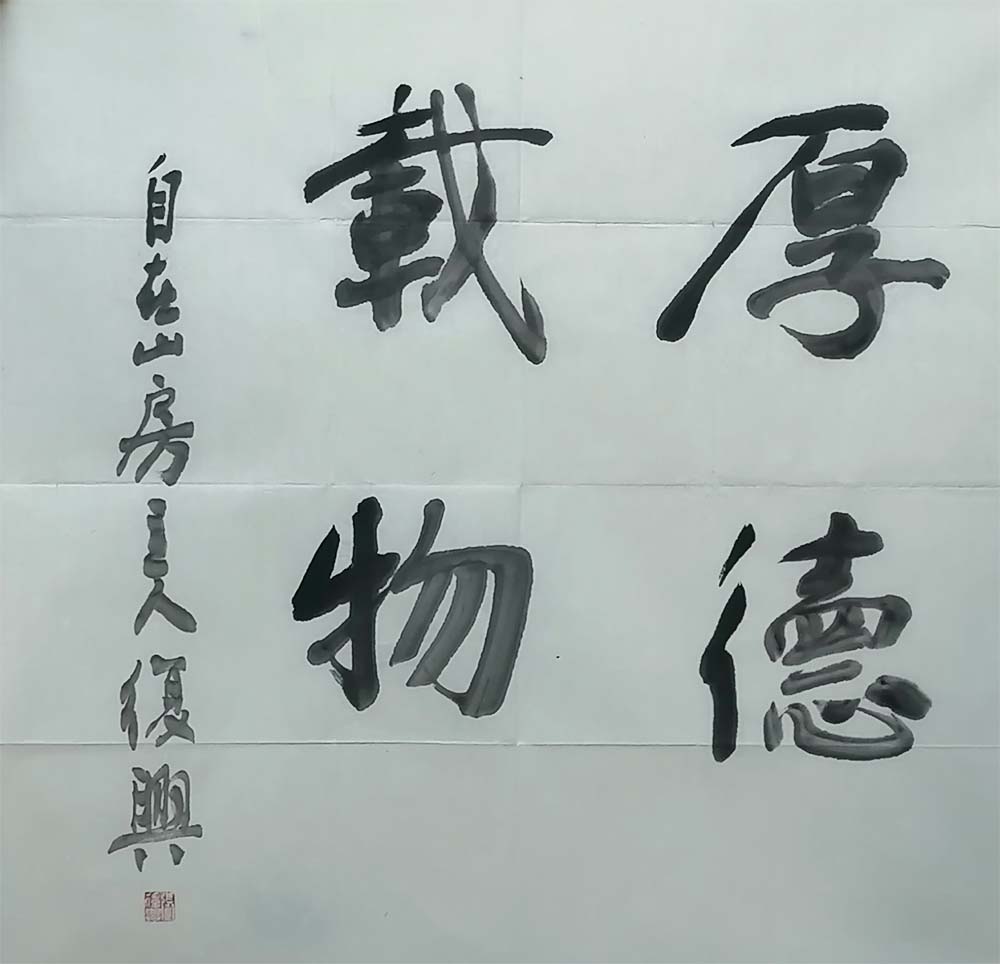 厚德
載物
自在山房主人復興